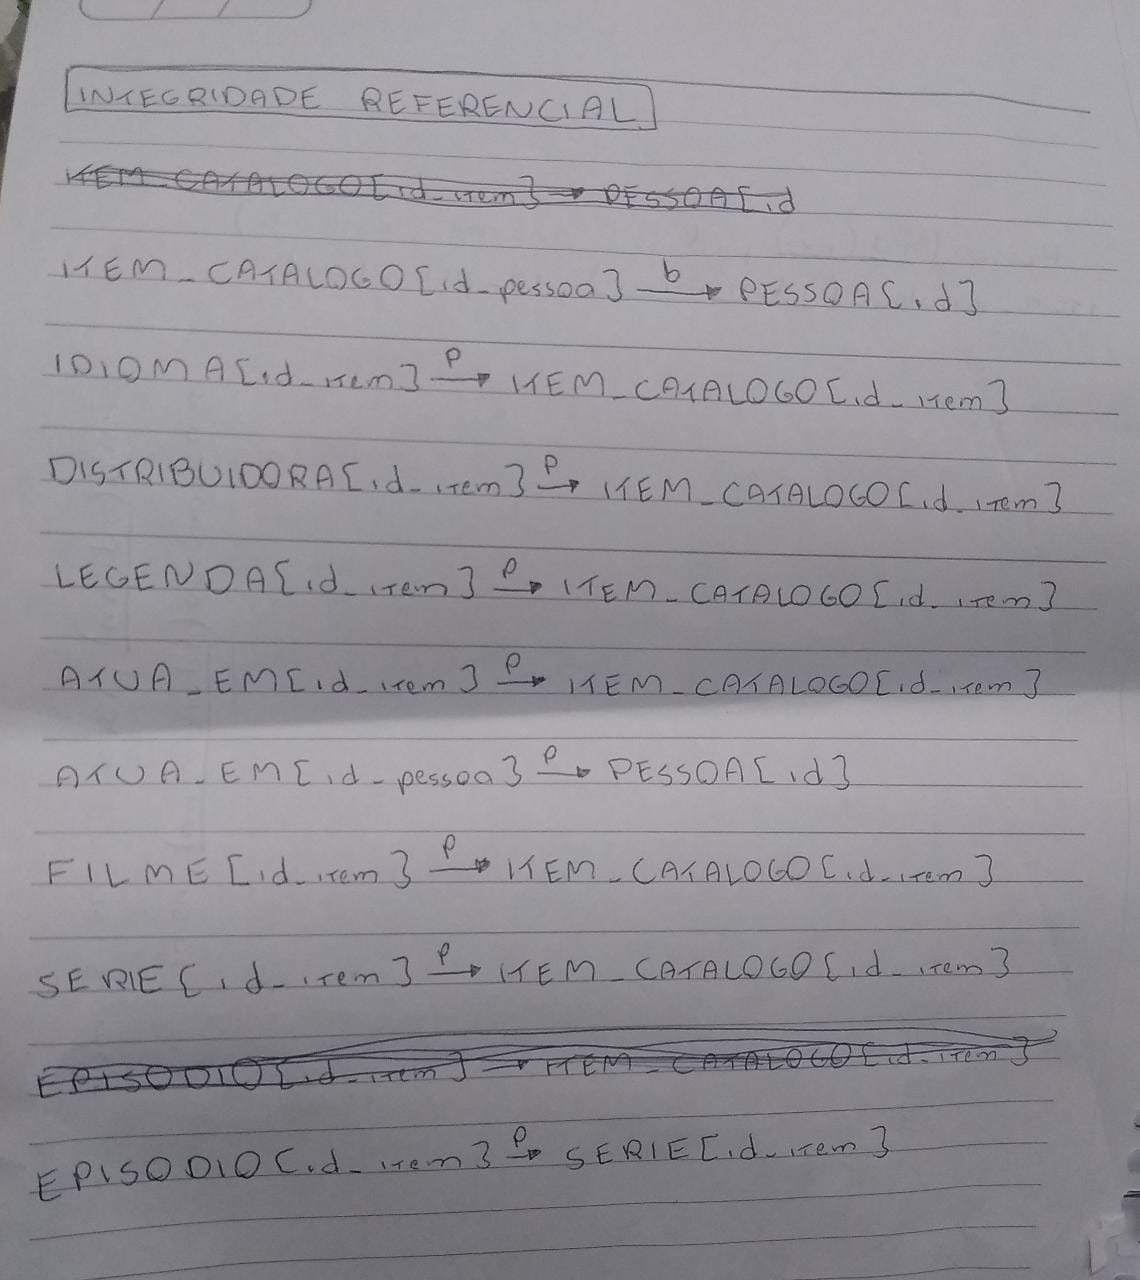 INTEGRIDADE REFERENCIAL
ITEM_CATALOGO[id_item] → PESSOA[id
ITEM_CATALOGO[id_pessoa] b→ PESSOA[id]
IDIOMA[id_item] p→ ITEM_CATALOGO[id_item]
DISTRIBUIDORA[id_item] p→ ITEM_CATALOGO[id_item]
LEGENDA[id_item] p→ ITEM_CATALOGO[id_item]
ATUA_EM[id_item] p→ ITEM_CATALOGO[id_item]
ATUA_EM[id_pessoa] p→ PESSOA[id]
FILME[id_item] p→ ITEM_CATALOGO[id_item]
SERIE[id_item] p→ ITEM_CATALOGO[id_item]
EPISODIO[id_item] → ITEM_CATALOGO[id_item]
EPISODIO[id_item] p→ SERIE[id_item]